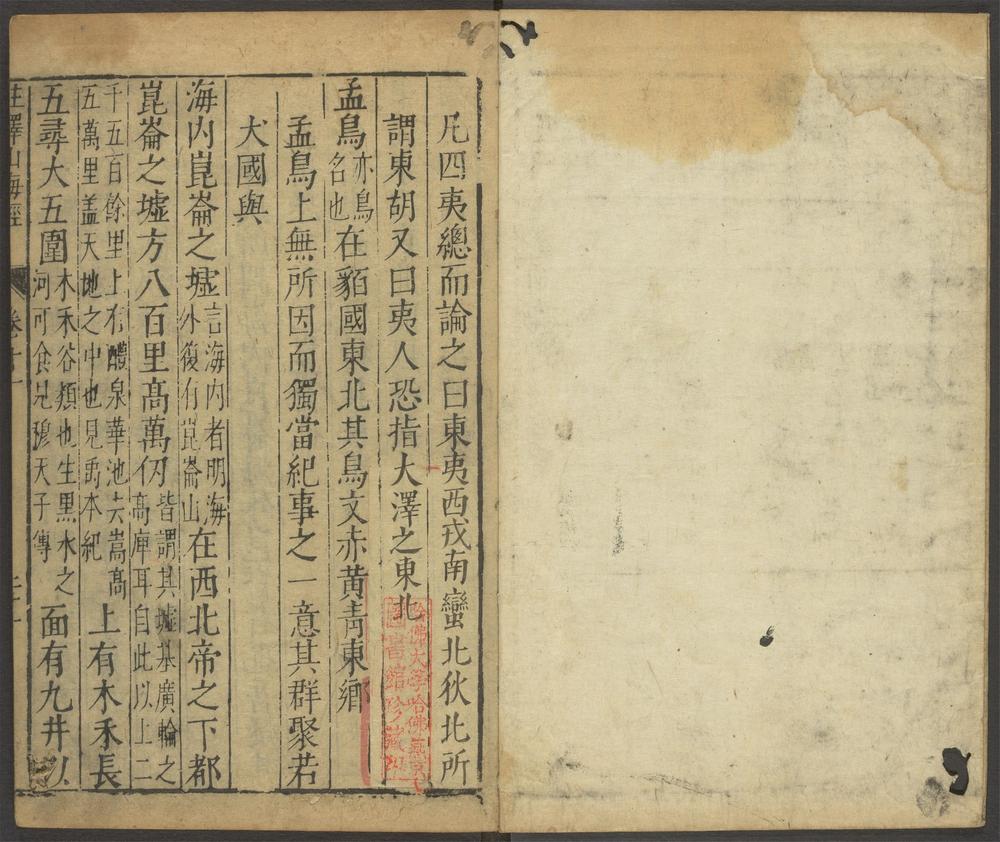 凡四夷總而論之曰東夷西戎南蠻北狄北所
謂東胡又曰夷人恐指大澤之東北
孟鳥亦鳥名也在貊國東北其鳥文赤黃青東鄉
孟鳥上無所因而獨當紀事之一意其群聚若
犬國與
海內崑崙之墟言海內者明海外復有崑崙山在西北帝之下都
崑崙之墟方八百里高萬仞皆謂其墟基廣輪之高庳耳自此以上二
千五百餘里上有醴泉華池去嵩高五萬里盖天地之中也見禹本紀上有木禾長
五尋大五圍木禾谷類也生黑水之河可食見穆天子傳面有九井以
山海經
卷十一
哈佛大學哈佛燕京
圖書館珍藏